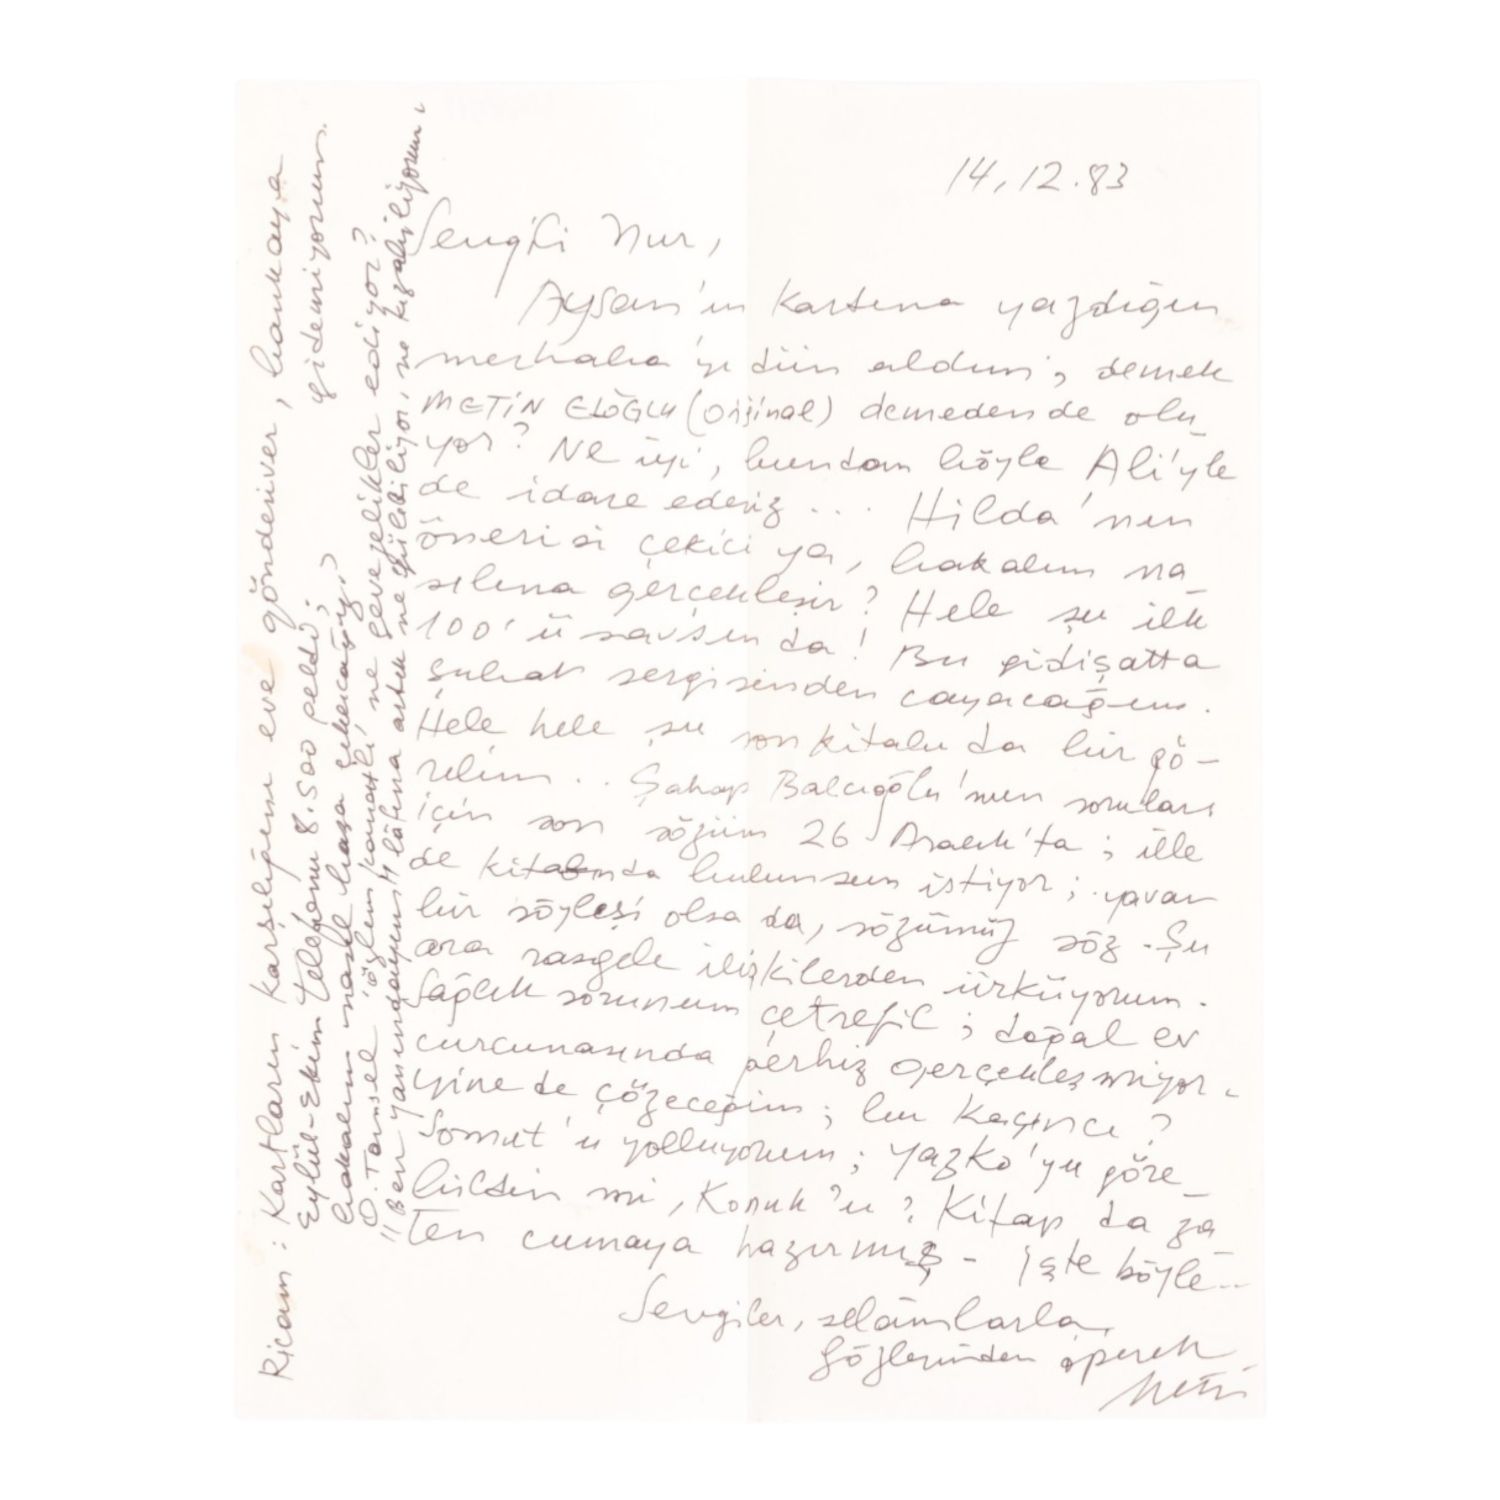 14.12.83
Sevgili Nur,
Aysan'ın kartına yazdığın
merhaba'yı dün aldım; demek
METİN ELOĞLU (orijinal) demeden de olu
yor? Ne iyi, bundan böyle Ali'yle
de idare ederiz... Hilda'nın
önerisi çekici ya, bakalım na
sılına gerçekleşir? Hele şu ilk
100'ü savsın da! Bu gidişatta
Şubat sergisinden cayacağım.
Hele hele şu son kitabı da bir gö-
relim.. Şahap Balcıoğlu'nun soruları
için son sözüm 26 Aralık'ta; ille
de kitabında bulunsun istiyor; yavan
bir söyleşi olsa da, sözümüz söz. Şu
ara rasgele ilişkilerden ürküyorum.
Sağlık sorunum çetrefil; doğal ev
curcunasında perhiz gerçekleşmiyor.
Yine de çözeceğim; bu kaçıncı?
Somut'u yolluyorum; Yazko'yu göre
bildin mi, Konuk'u? Kitap da za
ten cumaya hazırmış - İşte böyle...
Sevgiler, selâmlarla,
gözlerinden öperek
Metin
Ricam: Kartların karşılığını eve gönderiver, bankaya
gidemiyorum.
Eylül-Ekim telefonu 8.500 geldi;
bakalım nasıl başa çıkacağız?
O. Tansel "özlem kanatlı", ne gevezelikler ediyor?
"Ben yanındayım" lâfına artık ne gülebiliyor, ne kızabiliyorum.